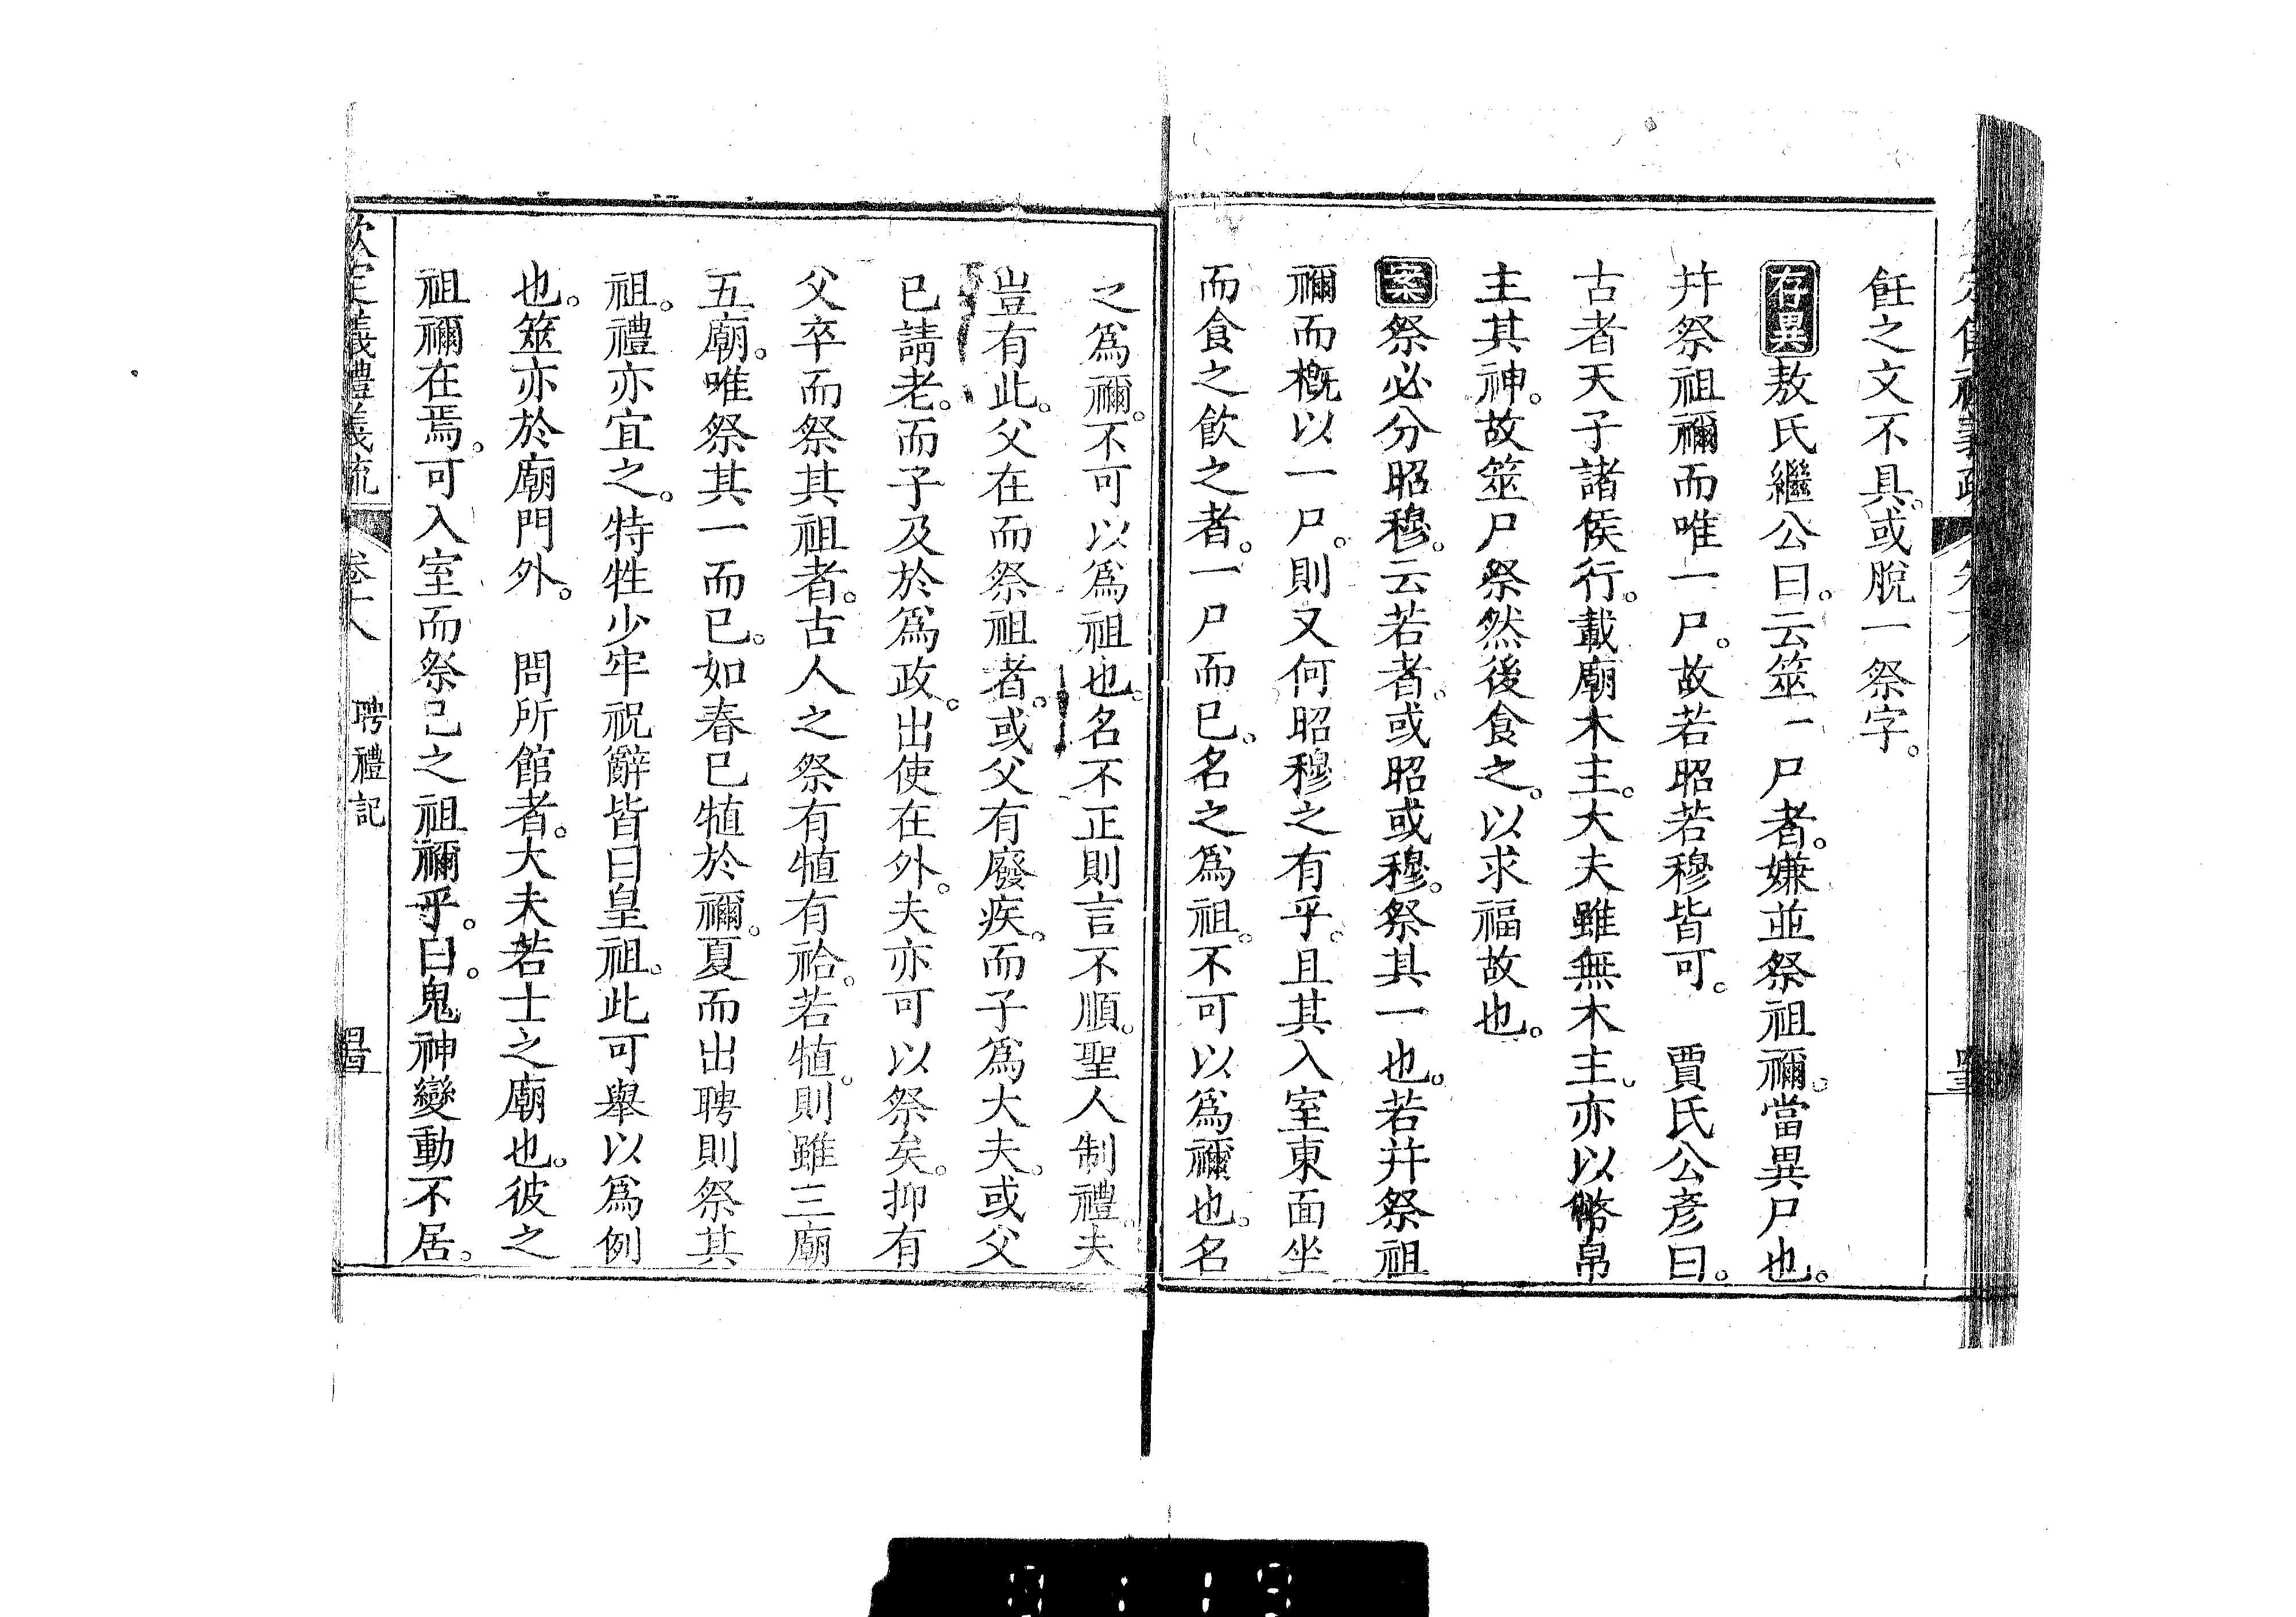 飪之文不具。或脫一祭字。
存異敖氏繼公曰。云筮一尸者。嫌並祭祖禰。當異尸也。
幷祭祖禰而唯一尸。故若昭若穆皆可。　賈氏公彥曰。
古者天子諸侯行。載廟木主。大夫雖無木主。亦以幣帛
主其神。故筮尸祭然後食之。以求福故也。
案祭必分昭穆。云若者。或昭或穆。祭其一也。若幷祭祖
禰而槪以一尸。則又何昭穆之有乎。且其入室東面坐
而食之飮之者。一尸而已。名之爲祖。不可以爲禰也。名
之爲禰。不可以爲祖也。名不正則言不順。聖人制禮。夫
豈有此。父在而祭祖者。或父有廢疾。而子爲大夫。或父
已請老。而子及於爲政。出使在外。夫亦可以祭矣。抑有
父卒而祭其祖者。古人之祭有犆有祫。若犆。則雖三廟
五廟。唯祭其一而已。如春已犆於禰。夏而出聘則祭其
祖。禮亦宜之。特牲少牢祝辭皆曰皇祖。此可舉以爲例
也。筮亦於廟門外。　問所館者。大夫若士之廟也。彼之
祖禰在焉。可入室而祭己之祖禰乎。曰。鬼神變動不居。
欽定義禮義疏　卷十八　聘禮記